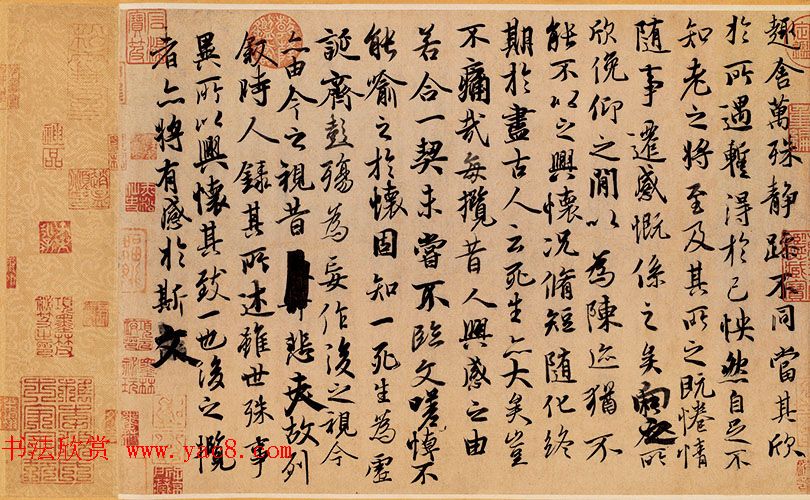 趣舍萬殊静躁不同當其欣
於所遇暫得於己怏然自足不
知老之將至及其所之既惓情
随事遷感慨係之矣向之所
欣俛仰之間以為陳迹猶不
能不以之興懷况脩短随化終
期於盡古人云死生亦大矣豈
不痛哉每攬昔人興感之由
若合一契未嘗不臨文嗟悼不
能喻之於懷固知一死生為虚
誕齊彭殤為妄作後之視今
亦由今之視昔悲夫故列
叙時人錄其所述雖世殊事
異所以興懷其致一也後之攬
者亦將有感於斯文
神品
书法欣赏 www.yac8.com